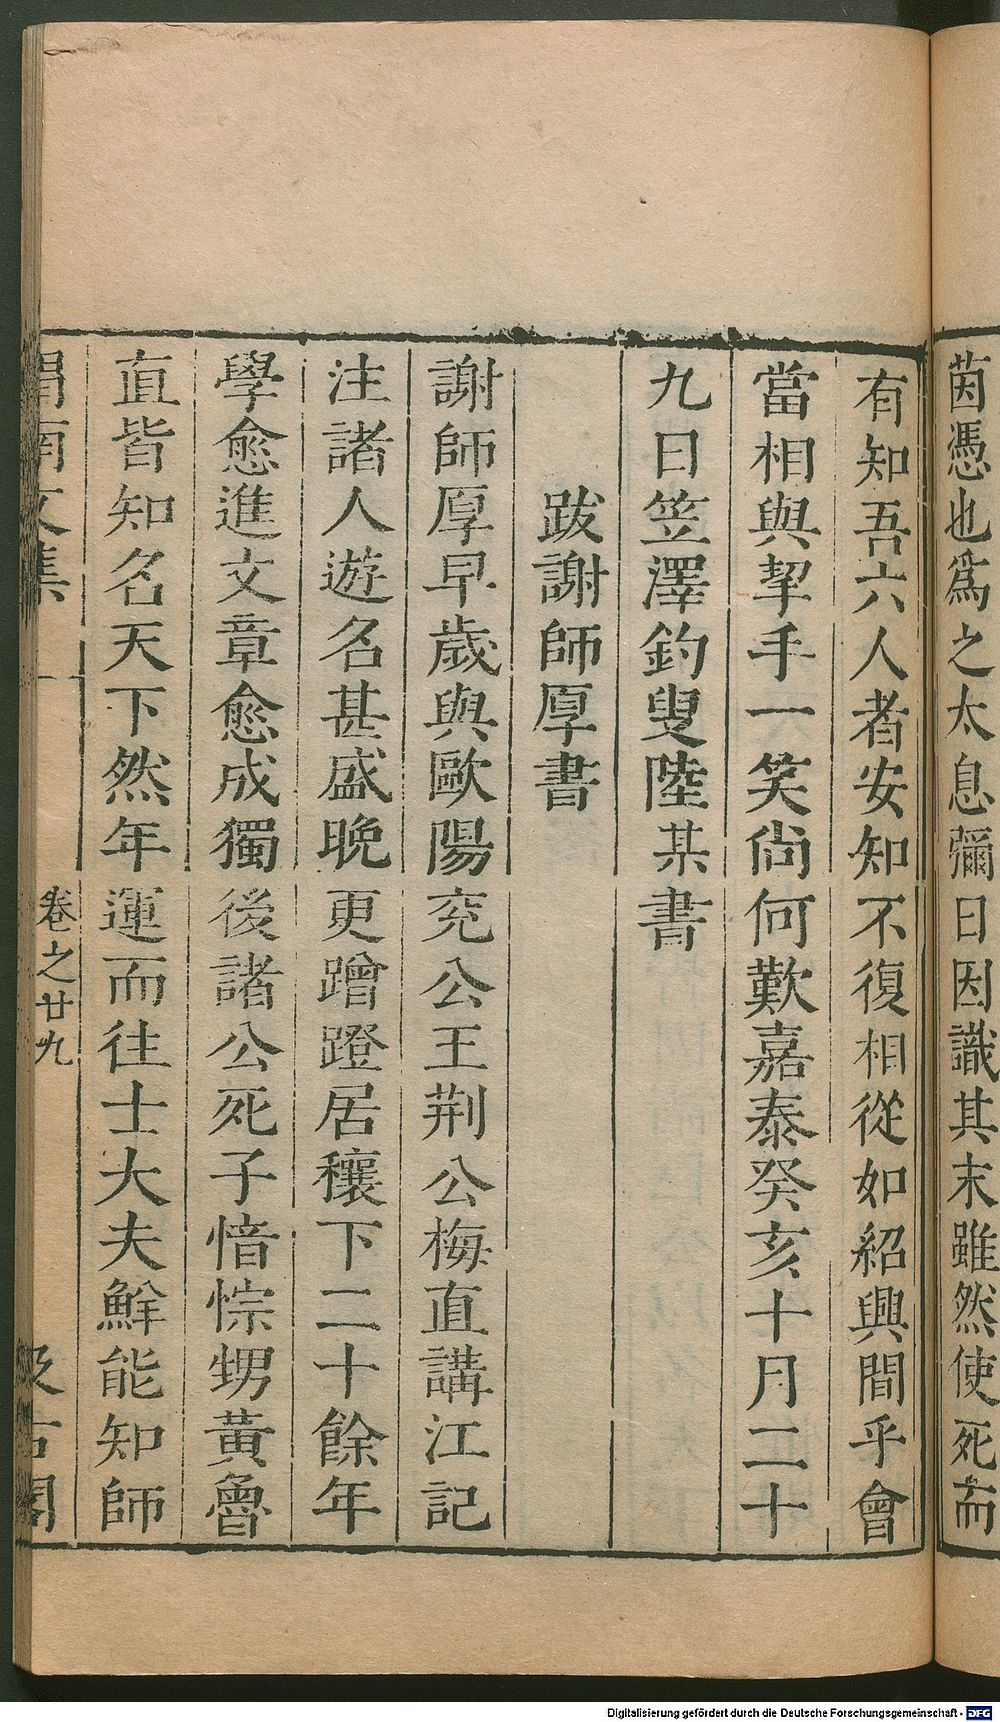 茵憑也爲之太息彌日因識其末雖然使死而
有知吾六人者安知不復相從如紹興間乎會
當相與挈手一笑尙何歎嘉泰癸亥十月二十
九日笠澤釣叟陸某書
跋謝師厚書
謝師厚早歲與歐陽兖公王荆公梅直講江記
注諸人遊名甚盛晩更蹭蹬居穰下二十餘年
學愈進文章愈成獨後諸公死子愔悰甥黃魯
直皆知名天下然年運而往士大夫鮮能知師
渭南文集 卷之廿九 汲古閣
Digitalisierung gefördert durch die Deutsche Forschungsgemeinschaft - DFG